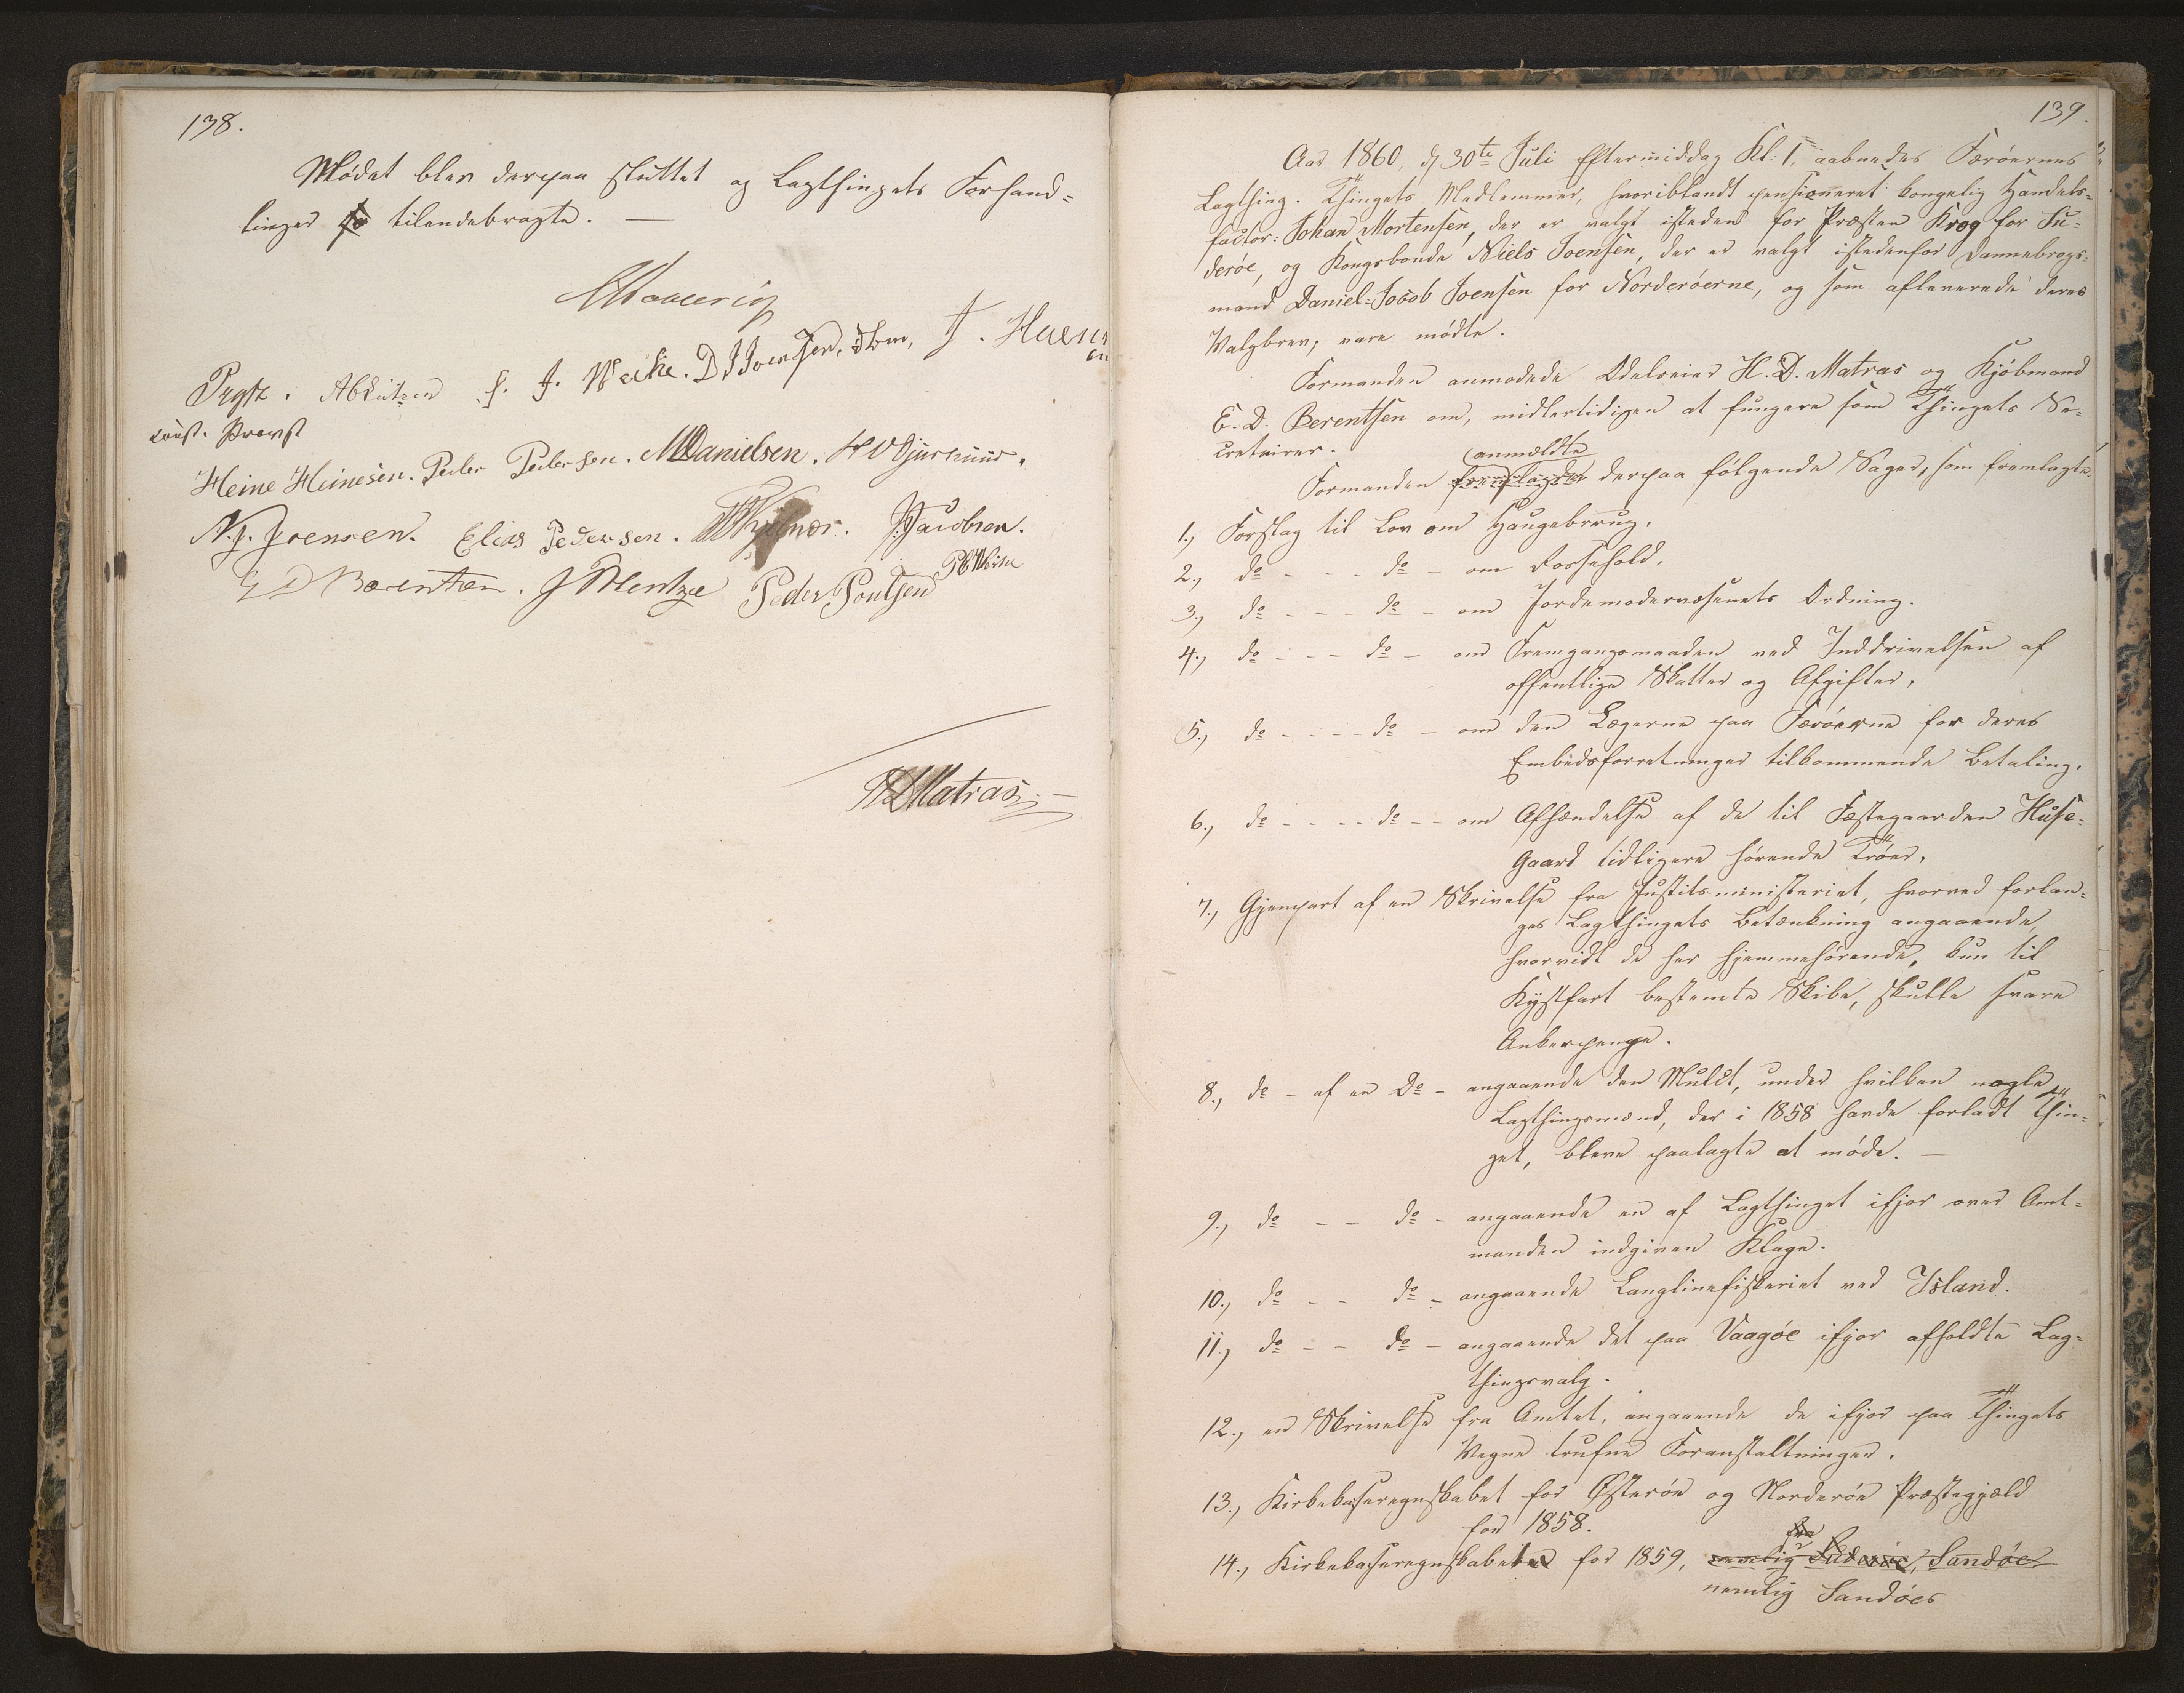 138.
Mødet blev derpaa sluttet og Lagthingets Forhand=
linger tilendebragte. —
Heine Heinesen. Peder Pedersen. MDanielsen.
N. J. Joensen. Elias Pedersen. JJacobsen.
E D Bærentsen. J Mentze Peder Poulsen
HDMatras
139.
Aar 1860, d 30te Juli Eftermiddag Kl: 1, aabnedes Færøernes
Lagthing. Thingets Medlemmer, hvoriblandt pensioneret kongelig Handels=
factor: Johan Mortensen, der er valgt istedet for Præsten Krog for Su=
derøe, og Kongsbonde Niels Joensen, der er valgt istedenfor Dannebrogs=
mand Daniel=Jacob Joensen for Norderøerne, og som afleverede deres
Valgbrev, vare mødte.
Formanden anmodede Odelseier H. D. Matras og Kjøbmand
E. D. Berentsen om, midlertidigen at fungere som Thingets Se=
cretairer.
anmeldte
Formanden fremlagde derpaa følgende Sager, som fremlagte.
1., Forslag til Lov om Haugebrug.
2., do - - - do - om Forsehold.
3., do - - - do - om Jordemodervæsenets Ordning.
4., do - - - do - om Fremgangsmaaden ved Inddrivelsen af
offentlige Skatter og Afgifter,
5., do - - - - do - om den Lægerne paa Færøerne for deres
Embedsforretninger tilkommende Betaling.
6., do - - - - do - - om Afhændelse af de til Fæstegaarden Huse=
Gaard tidligere hørende Trøer.
7., Gjenpart af en Skrivelse fra Justitsministeriet, hvorved forlan=
ges Lagthingets Betænkning angaaende,
hvorvidt de her hjemmehørende, kun til
Kystfart bestemte Skibe, skulle svare
Ankerpenge.
8., do - af en Do - angaaende den Mulct, under hvilken nogle
Lagthingsmænd, der i 1858 havde forladt Thin=
get, bleve paalagte at møde. —
9., do - - do - angaaende en af Lagthinget ifjor over Amt=
manden indgiven Klage.
10., do - - do - angaaende Langlinefiskeriet ved Island.
11., do - - do - angaaende det paa Vaagøe ifjor afholdte Lag=
thingsvalg.
12., en Skrivelse fra Amtet, angaaende de ifjor paa Thingets
Vegne trufne Foranstaltninger.
13., Kirkekasseregnskabet for Østerøe og Norderøe Præstegjæld
for 1858.
for
14., Kirkekasseregnskaberne for 1859, nemlig Suderøe, Sandøe
nemlig Sandøes